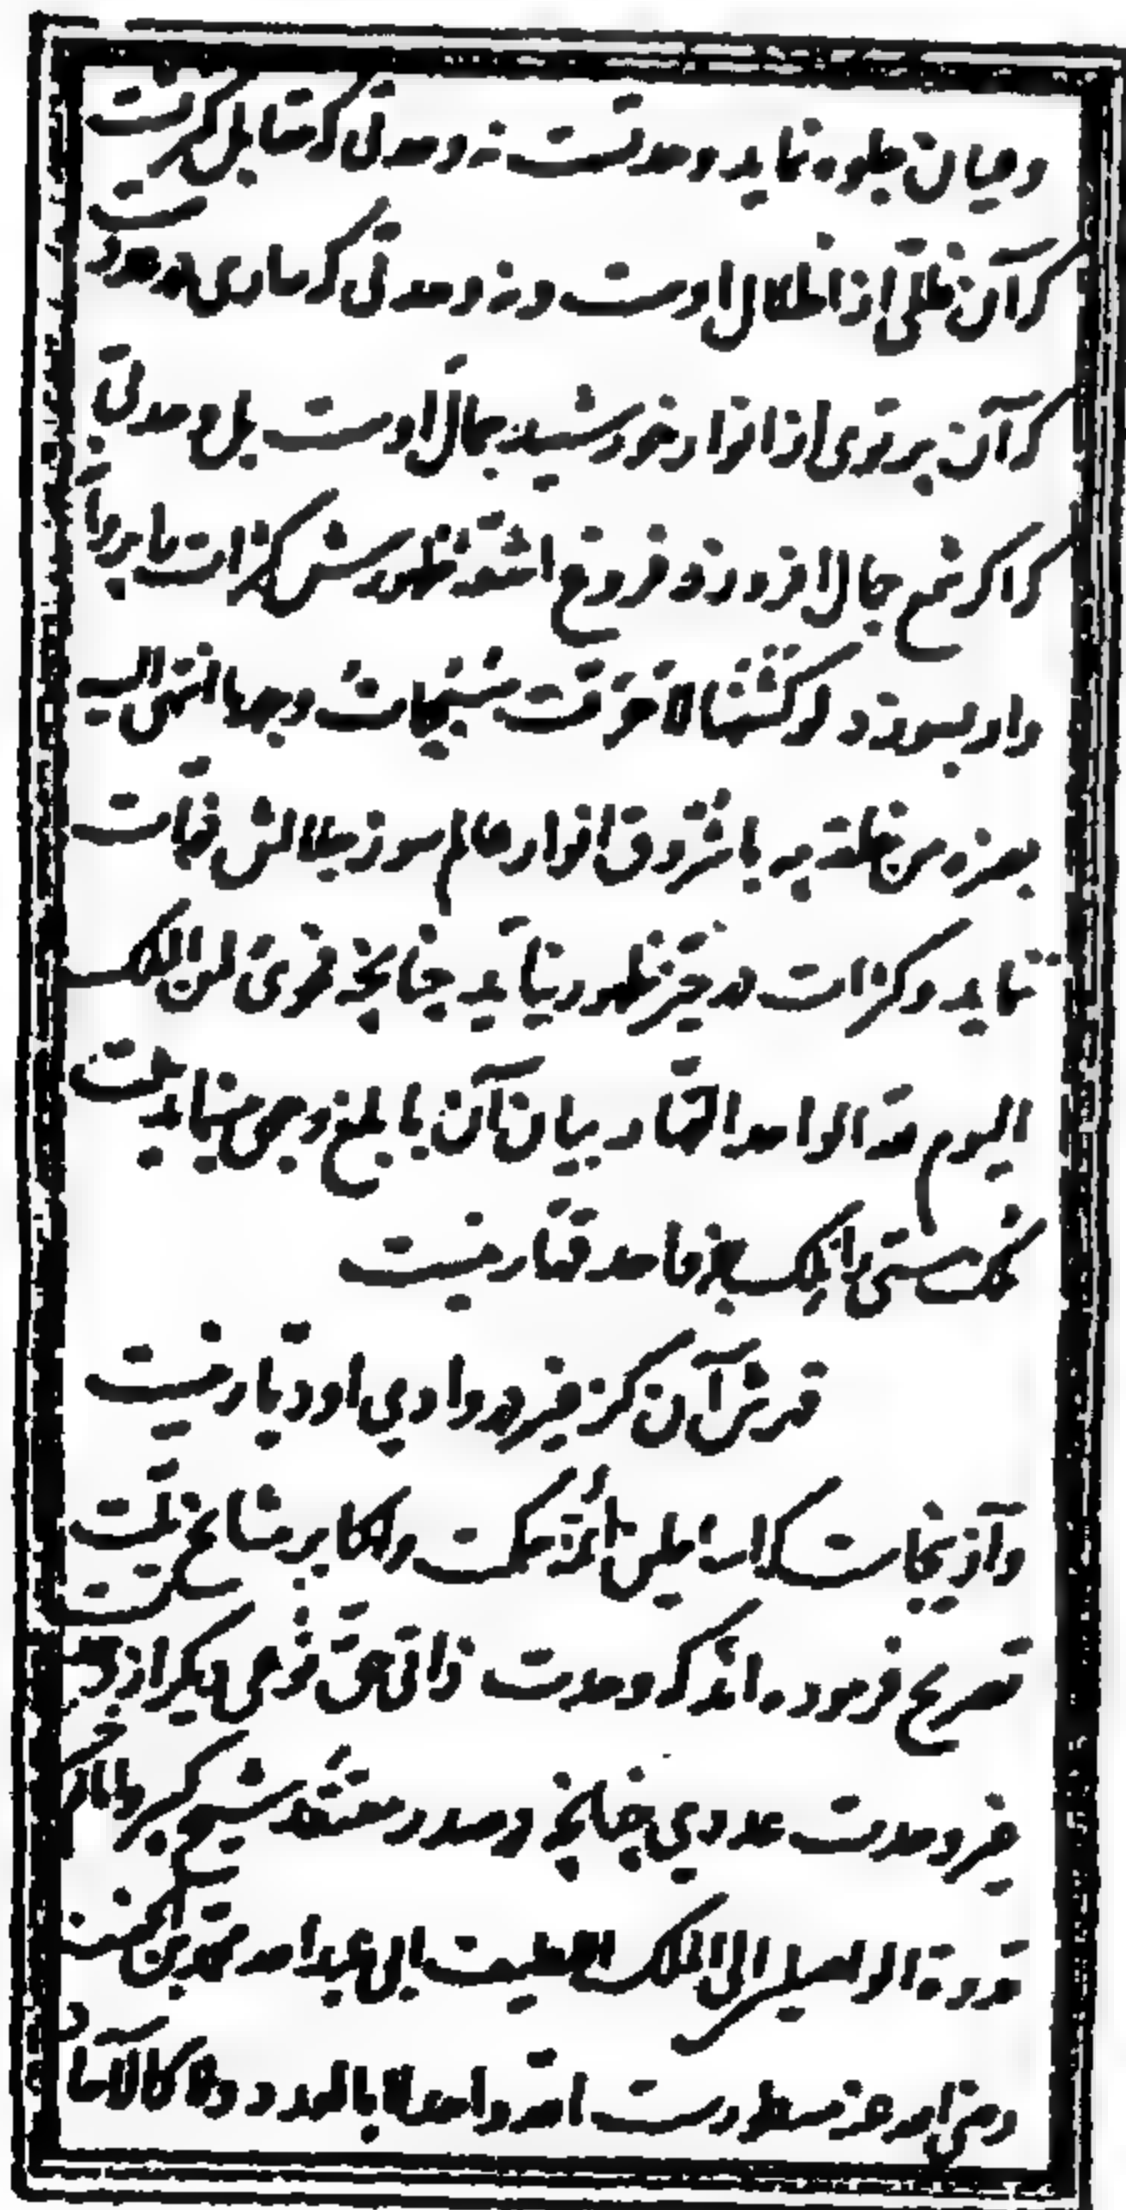 وعیان جلوه نماید وحدتست نه وحدتی که مقابل کثرتست
که آن ظلی از اظلال اوست ونه وحدتی که ساری در
که آن پرتوی از انوار خورشید جمال اوست بل وحدتی
که اگر شمع جمال افروزد و فروغ اشعهٔ ظهورش کثرات را پروانه
وار بسوزد لو کشفها لاحرقت سبحات وجهه ما انتهی الیه
بصره من خلقه چه با شروق انوار عالم سوز جلالش
نماید و کثرات در حیز ظهور نیاید چنانچه فحوی لمن الملک
الیوم لله الواحد القهار بیان آن بابلغ وجهی مینماید
ملک هستی را ملک جز واحد قهار نیست
آن کز غیر در وادی او دیار نیست
و از ینجاست که اساطین ائمهٔ حکمت و اکابر مشایخ ملت
تصریح فرموده اند که وحدت ذاتی حق نوعی دیگر از
غیر وحدت عددی چنانچه در صدر معتقد شیخ کبیر و امام
قدوة الواصلین الی الملک اللطیف ابی عبد الله محمد بن الخفیف
رضی الله عنه مسطورست الله واحد لا بالعدد ولا کالآحاد